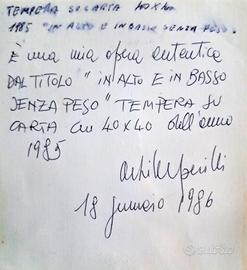 TEMPERA SU CARTA 40X40
1985 "IN ALTO E IN BASSO SENZA PESO"
È una mia opera autentica
DAL TITOLO "IN ALTO E IN BASSO
SENZA PESO" TEMPERA SU
CARTA cm 40x40 dell'anno
1985
Achille Perilli
18 gennaio 1986
subito